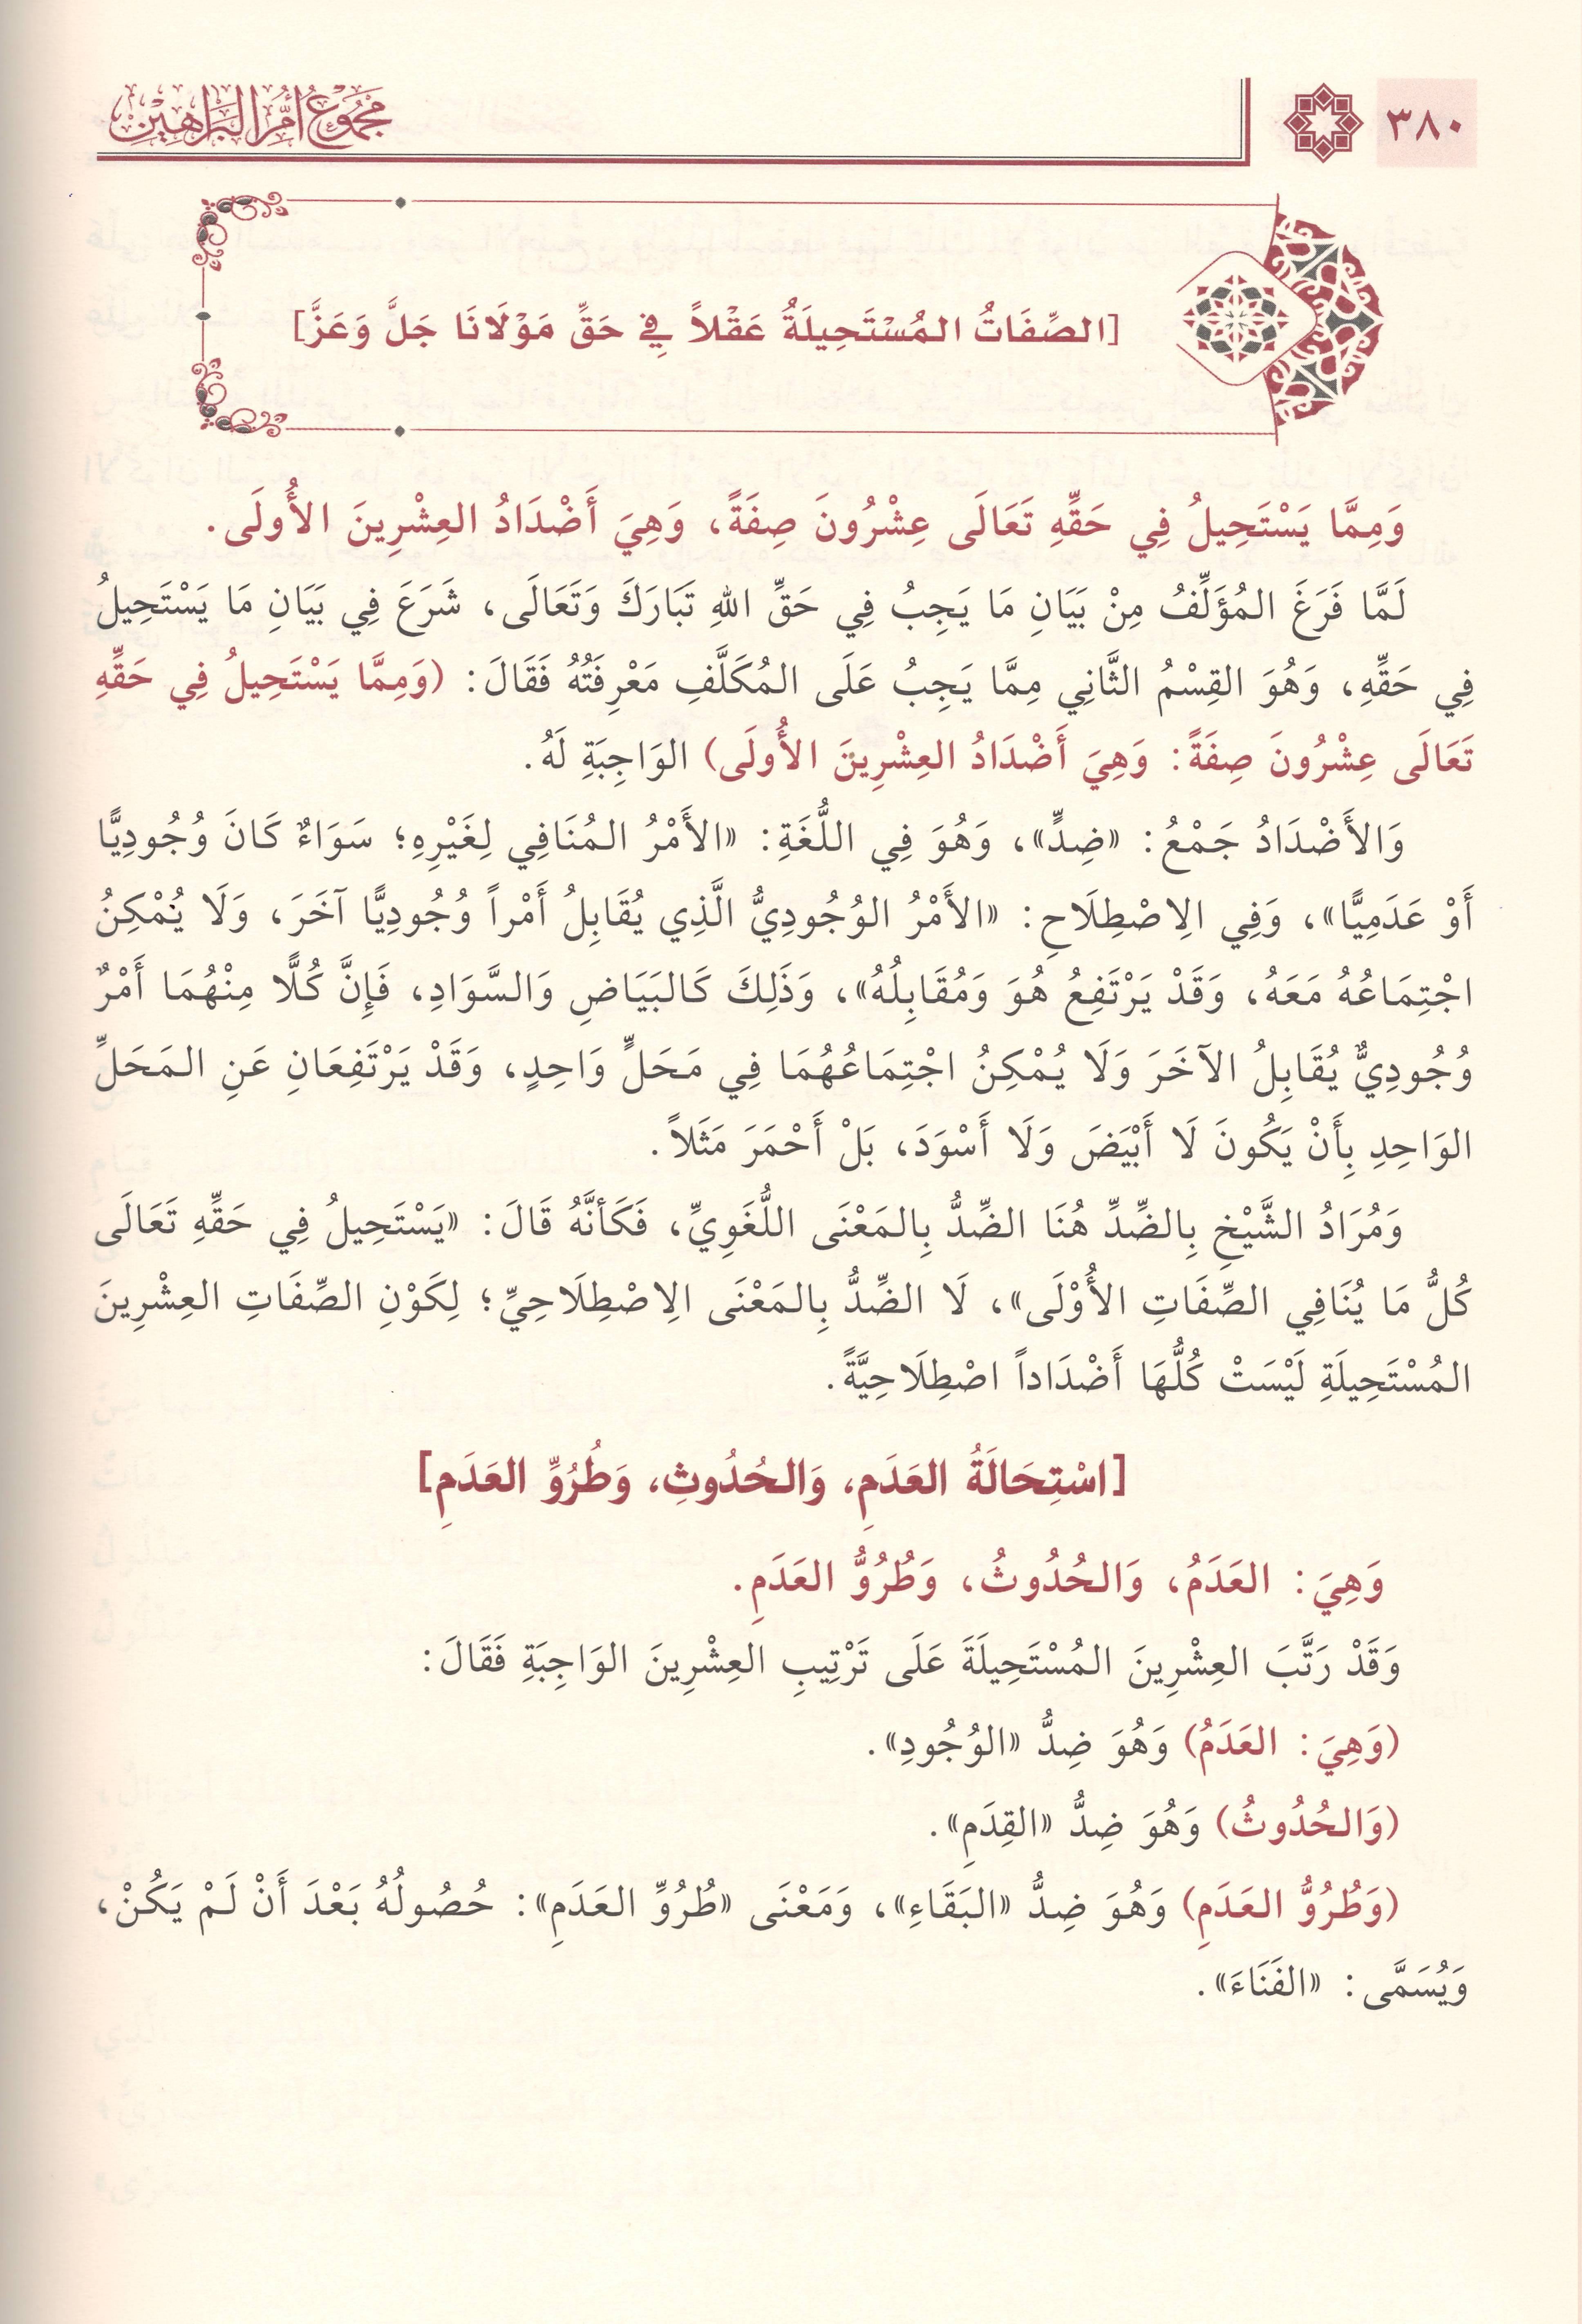 ٣٨٠
مجموع أم البراهين
[الصِّفَاتُ المُسْتَحِيلَةُ عَقْلاً فِي حَقِّ مَوْلَانَا جَلَّ وَعَزَّ]
وَمِمَّا يَسْتَحِيلُ فِي حَقِّهِ تَعَالَى عِشْرُونَ صِفَةً، وَهِيَ أَضْدَادُ العِشْرِينَ الأُولَى.
لَمَّا فَرَغَ المُؤَلِّفُ مِنْ بَيَانِ مَا يَجِبُ فِي حَقِّ اللهِ تَبَارَكَ وَتَعَالَى، شَرَعَ فِي بَيَانِ مَا يَسْتَحِيلُ
فِي حَقِّهِ، وَهُوَ القِسْمُ الثَّانِي مِمَّا يَجِبُ عَلَى المُكَلَّفِ مَعْرِفَتُهُ فَقَالَ: (وَمِمَّا يَسْتَحِيلُ فِي حَقِّهِ
تَعَالَى عِشْرُونَ صِفَةً: وَهِيَ أَضْدَادُ العِشْرِينَ الأُولَى) الوَاجِبَةِ لَهُ.
وَالأَضْدَادُ جَمْعُ: «ضِدٍّ»، وَهُوَ فِي اللُّغَةِ: «الأَمْرُ المُنَافِي لِغَيْرِهِ؛ سَوَاءٌ كَانَ وُجُودِيًّا
أَوْ عَدَمِيًّا»، وَفِي الِاصْطِلَاحِ: «الأَمْرُ الوُجُودِيُّ الَّذِي يُقَابِلُ أَمْراً وُجُودِيًّا آخَرَ، وَلَا يُمْكِنُ
اجْتِمَاعُهُ مَعَهُ، وَقَدْ يَرْتَفِعُ هُوَ وَمُقَابِلُهُ»، وَذَلِكَ كَالبَيَاضِ وَالسَّوَادِ، فَإِنَّ كُلًّا مِنْهُمَا أَمْرٌ
وُجُودِيٌّ يُقَابِلُ الآخَرَ وَلَا يُمْكِنُ اجْتِمَاعُهُمَا فِي مَحَلٍّ وَاحِدٍ، وَقَدْ يَرْتَفِعَانِ عَنِ المَحَلِّ
الوَاحِدِ بِأَنْ يَكُونَ لَا أَبْيَضَ وَلَا أَسْوَدَ، بَلْ أَحْمَرَ مَثَلاً.
وَمُرَادُ الشَّيْخِ بِالضِّدِّ هُنَا الضِّدُّ بِالمَعْنَى اللُّغَوِيِّ، فَكَأَنَّهُ قَالَ: «يَسْتَحِيلُ فِي حَقِّهِ تَعَالَى
كُلُّ مَا يُنَافِي الصِّفَاتِ الأُوْلَى»، لَا الضِّدُّ بِالمَعْنَى الِاصْطِلَاحِيِّ؛ لِكَوْنِ الصِّفَاتِ العِشْرِينَ
المُسْتَحِيلَةِ لَيْسَتْ كُلُّهَا أَضْدَاداً اصْطِلَاحِيَّةً.
[اسْتِحَالَةُ العَدَمِ، وَالحُدُوثِ، وَطُرُوِّ العَدَمِ]
وَهِيَ: العَدَمُ، وَالحُدُوثُ، وَطُرُوُّ العَدَمِ.
وَقَدْ رَتَّبَ العِشْرِينَ المُسْتَحِيلَةَ عَلَى تَرْتِيبِ العِشْرِينَ الوَاجِبَةِ فَقَالَ:
(وَهِيَ: العَدَمُ) وَهُوَ ضِدُّ «الوُجُودِ».
(وَالحُدُوثُ) وَهُوَ ضِدُّ «القِدَمِ».
(وَطُرُوُّ العَدَمِ) وَهُوَ ضِدُّ «البَقَاءِ»، وَمَعْنَى «طُرُوِّ العَدَمِ»: حُصُولُهُ بَعْدَ أَنْ لَمْ يَكُنْ،
وَيُسَمَّى: «الفَنَاءَ».